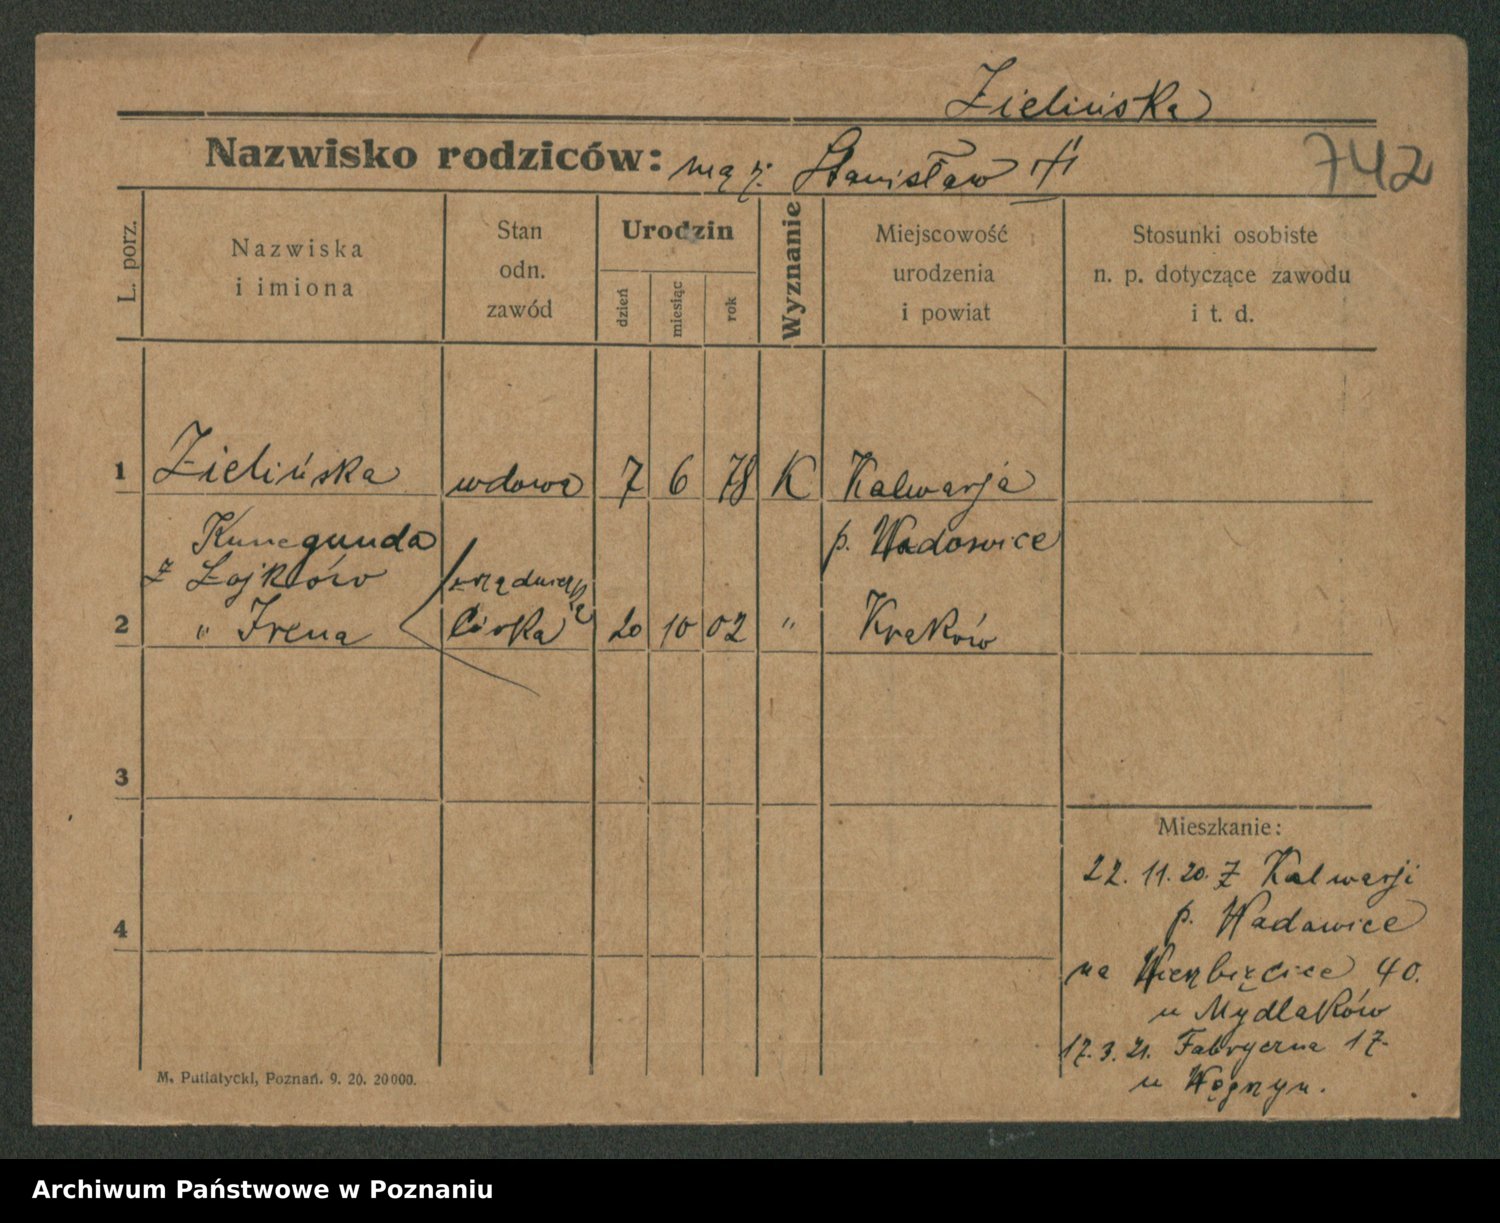 Zielińska
Nazwisko rodziców: mąż: Stanisław
742
L. porz.
Nazwiska
i imiona
Stan
odn.
zawód
Urodzin
dzień
miesiąc
rok
Wyznanie
Miejscowość
urodzenia
i powiat
Stosunki osobiste
n. p. dotyczące zawodu
i t. d.
1 Zielińska wdowa 7 6 78 K Kalwarja
Kunegunda p. Wadowice
z Zajków urzędniczka
2 " Irena córka 20 10 02 " Kraków
3
4
Mieszkanie:
22. 11. 20. z Kalwarji
p. Wadowice
na Wierzbięcice 40.
u Mydlaków
17. 3. 21. Fabryczna 17
u
M. Putiatycki, Poznań. 9. 20. 20000.
Archiwum Państwowe w Poznaniu